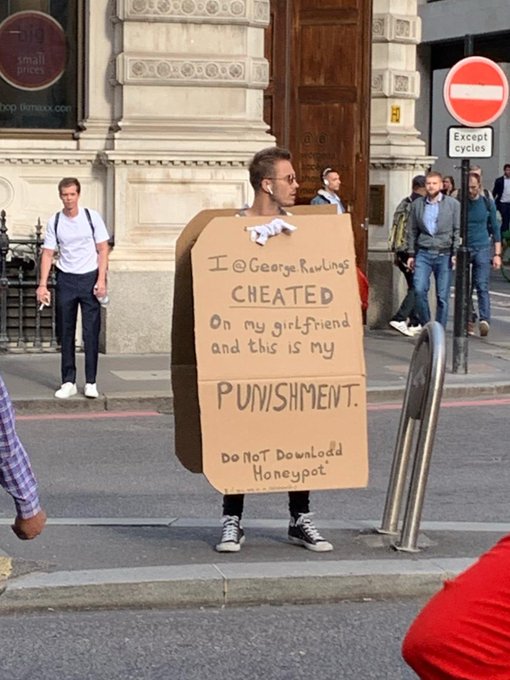 small
prices
hop tkmaxx.com
Except
cycles
I @George Rawlings
CHEATED
On my girlfriend
and this is my
PUNISHMENT.
DO NOT DownLoad
Honeypot